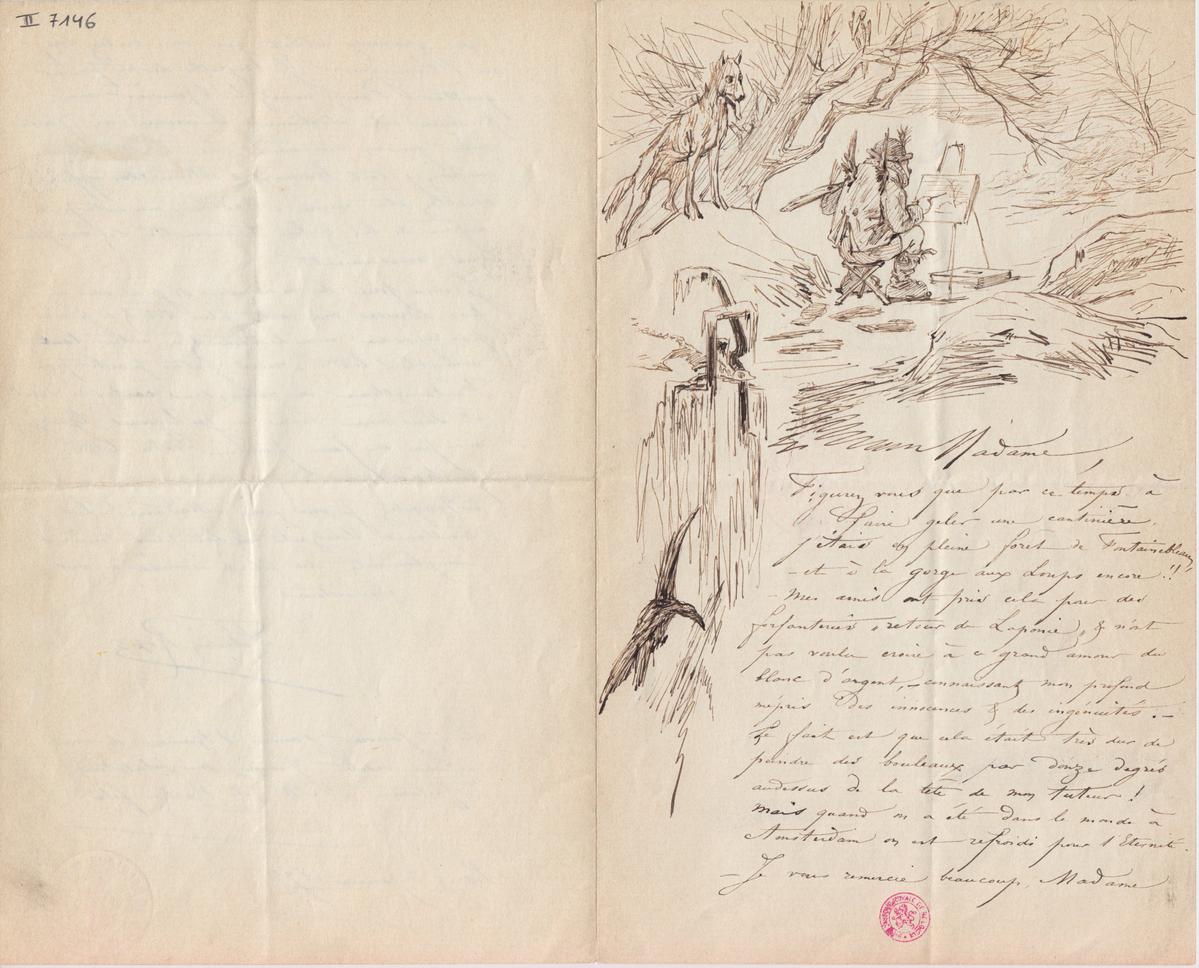 II 7146
Madame,
Figurez vous que par ce temps à
faire geler une cantinière,
j'étais en pleine forêt de Fontainebleau,
– et à la gorge aux Loups encore !!
– Mes amis ont pris cela pour des
forfanteries, retour de Laponie, & n'ont
pas voulu croire à ce grand amour du
blanc d'argent, – connaissant mon profond
mépris des innocences & des ingénuités. –
Le fait est que cela était très dur de
peindre des bouleaux par douze degrés
audessus de la tête de mon tuteur !
Mais quand on a été dans le monde à
Amsterdam on est refroidi pour l'Eternité.
– Je vous remercie beaucoup, Madame